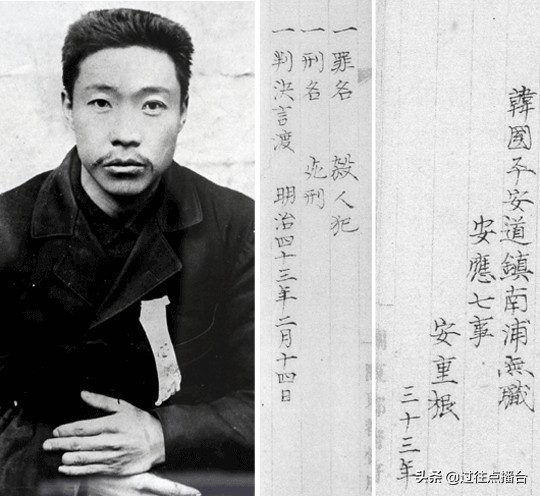 韓國平安道鎮南浦無職
安應七事
安重根
三十三年
一罪名 殺人犯
一刑名 死刑
一判決言渡 明治四十三年二月十四日
头条 @过往点播台